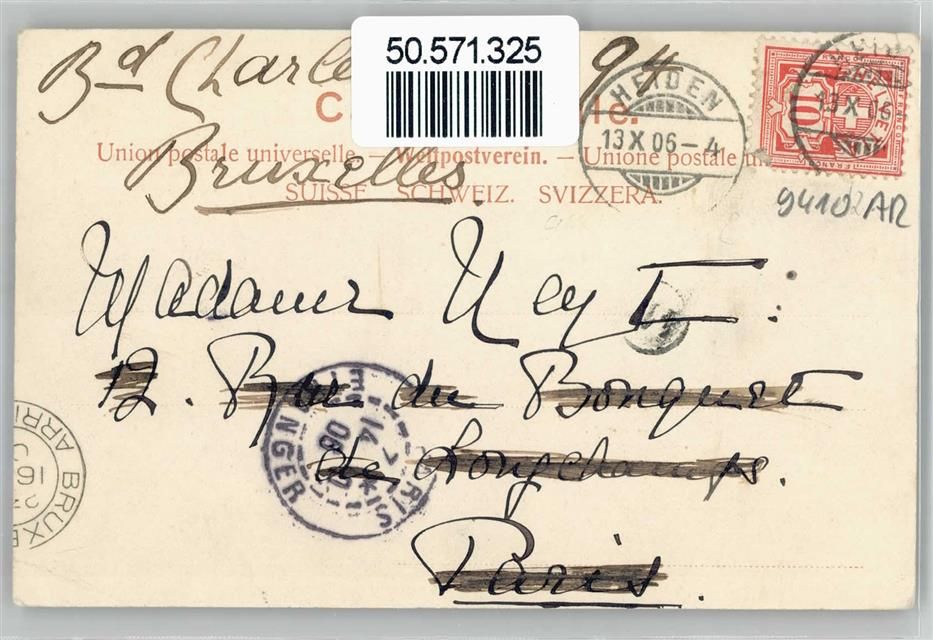 50.571.325
Bd Charle 94
C 1e.
Union postale universelle. – Weltpostverein. – Unione postale u
Bruxelles
SUISSE. SCHWEIZ. SVIZZERA.
HEIDEN
13 X 06 – 4
10
FRANCO
13 X 06
94102 AR
Madame Neyt:
12. Rue du Bouquet
de Longchamps.
Paris
PARIS
14
06
ETRANGER
BRUXE
ARRI
16